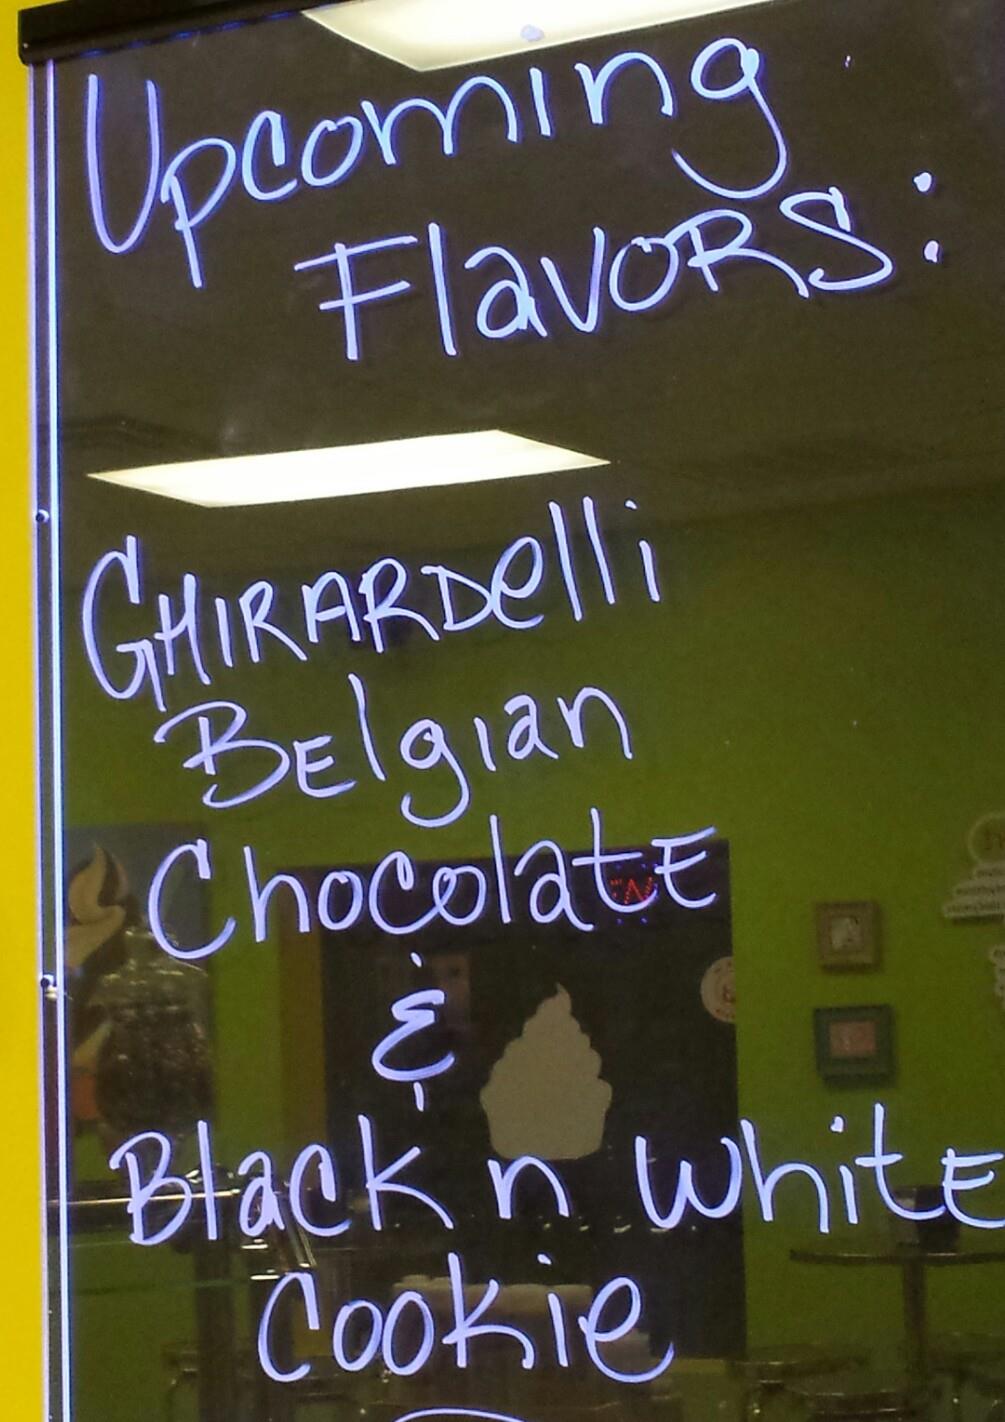 Upcoming
Flavors:
Ghirardelli
Belgian
Chocolate
&
Black n White
Cookie